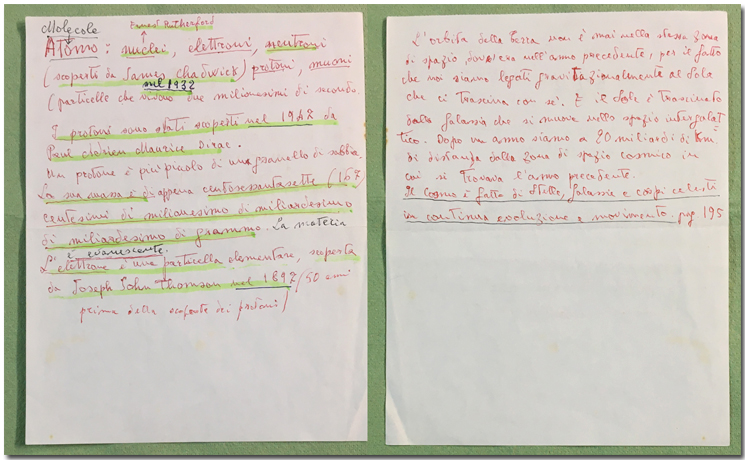 Molecole
Ernest Rutherford
Atomo: nuclei, elettroni, neutroni
(scoperti da James Chadwick) protoni, muoni
nel 1932
(particelle che vivono due milionesimi di secondo.
I protoni sono stati scoperti nel 1947 da
Paul Adrien Maurice Dirac.
Un protone è più piccolo di un granello di sabbia.
La sua massa è di appena centosessantasette (167)
centesimi di milionesimo di miliardesimo
di miliardesimo di grammo. La materia
è evanescente.
L'elettrone è una particella elementare, scoperta
da Joseph John Thomson nel 1897 (50 anni
prima della scoperta dei protoni)
L'orbita della Terra non è mai nella stessa zona
di spazio dov'era nell'anno precedente, per il fatto
che noi siamo legati gravitazionalmente al Sole
che ci trascina con sé. E il Sole è trascinato
dalla galassia che si muove nello spazio intergalat
tico. Dopo un anno siamo a 20 miliardi di Km
di distanza dalla zona di spazio cosmico in
cui si trovava l'anno precedente.
Il cosmo è fatto di stelle, galassie e corpi celesti
in continua evoluzione e movimento. pag 195